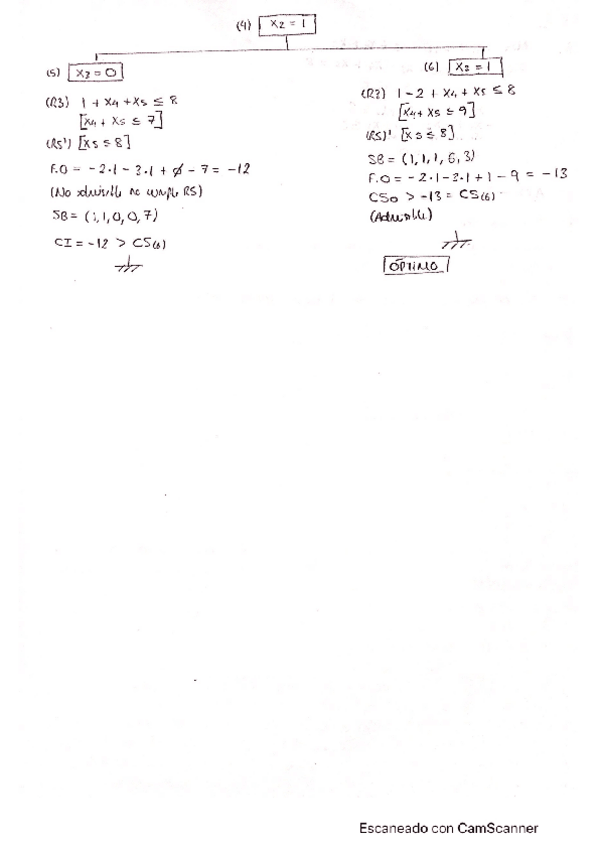 (4) X2 = 1
(5) X3 = 0
(R3) 1 + X4 + X5 ≤ 8
[X4 + X5 ≤ 7]
(R5') [X5 ≤ 8]
F.O = -2·1 - 3·1 + 0 - 7 = -12
(No admisible no cumple R5)
SB = (1, 1, 0, 0, 7)
CI = -12 > CS(6)
(6) X3 = 1
(R3) 1 - 2 + X4 + X5 ≤ 8
[X4 + X5 ≤ 9]
(R5)' [X5 ≤ 8]
SB = (1, 1, 1, 6, 3)
F.O = -2·1 - 3·1 + 1 - 9 = -13
CS0 > -13 = CS(6)
(Admisible)
ÓPTIMO
Escaneado con CamScanner